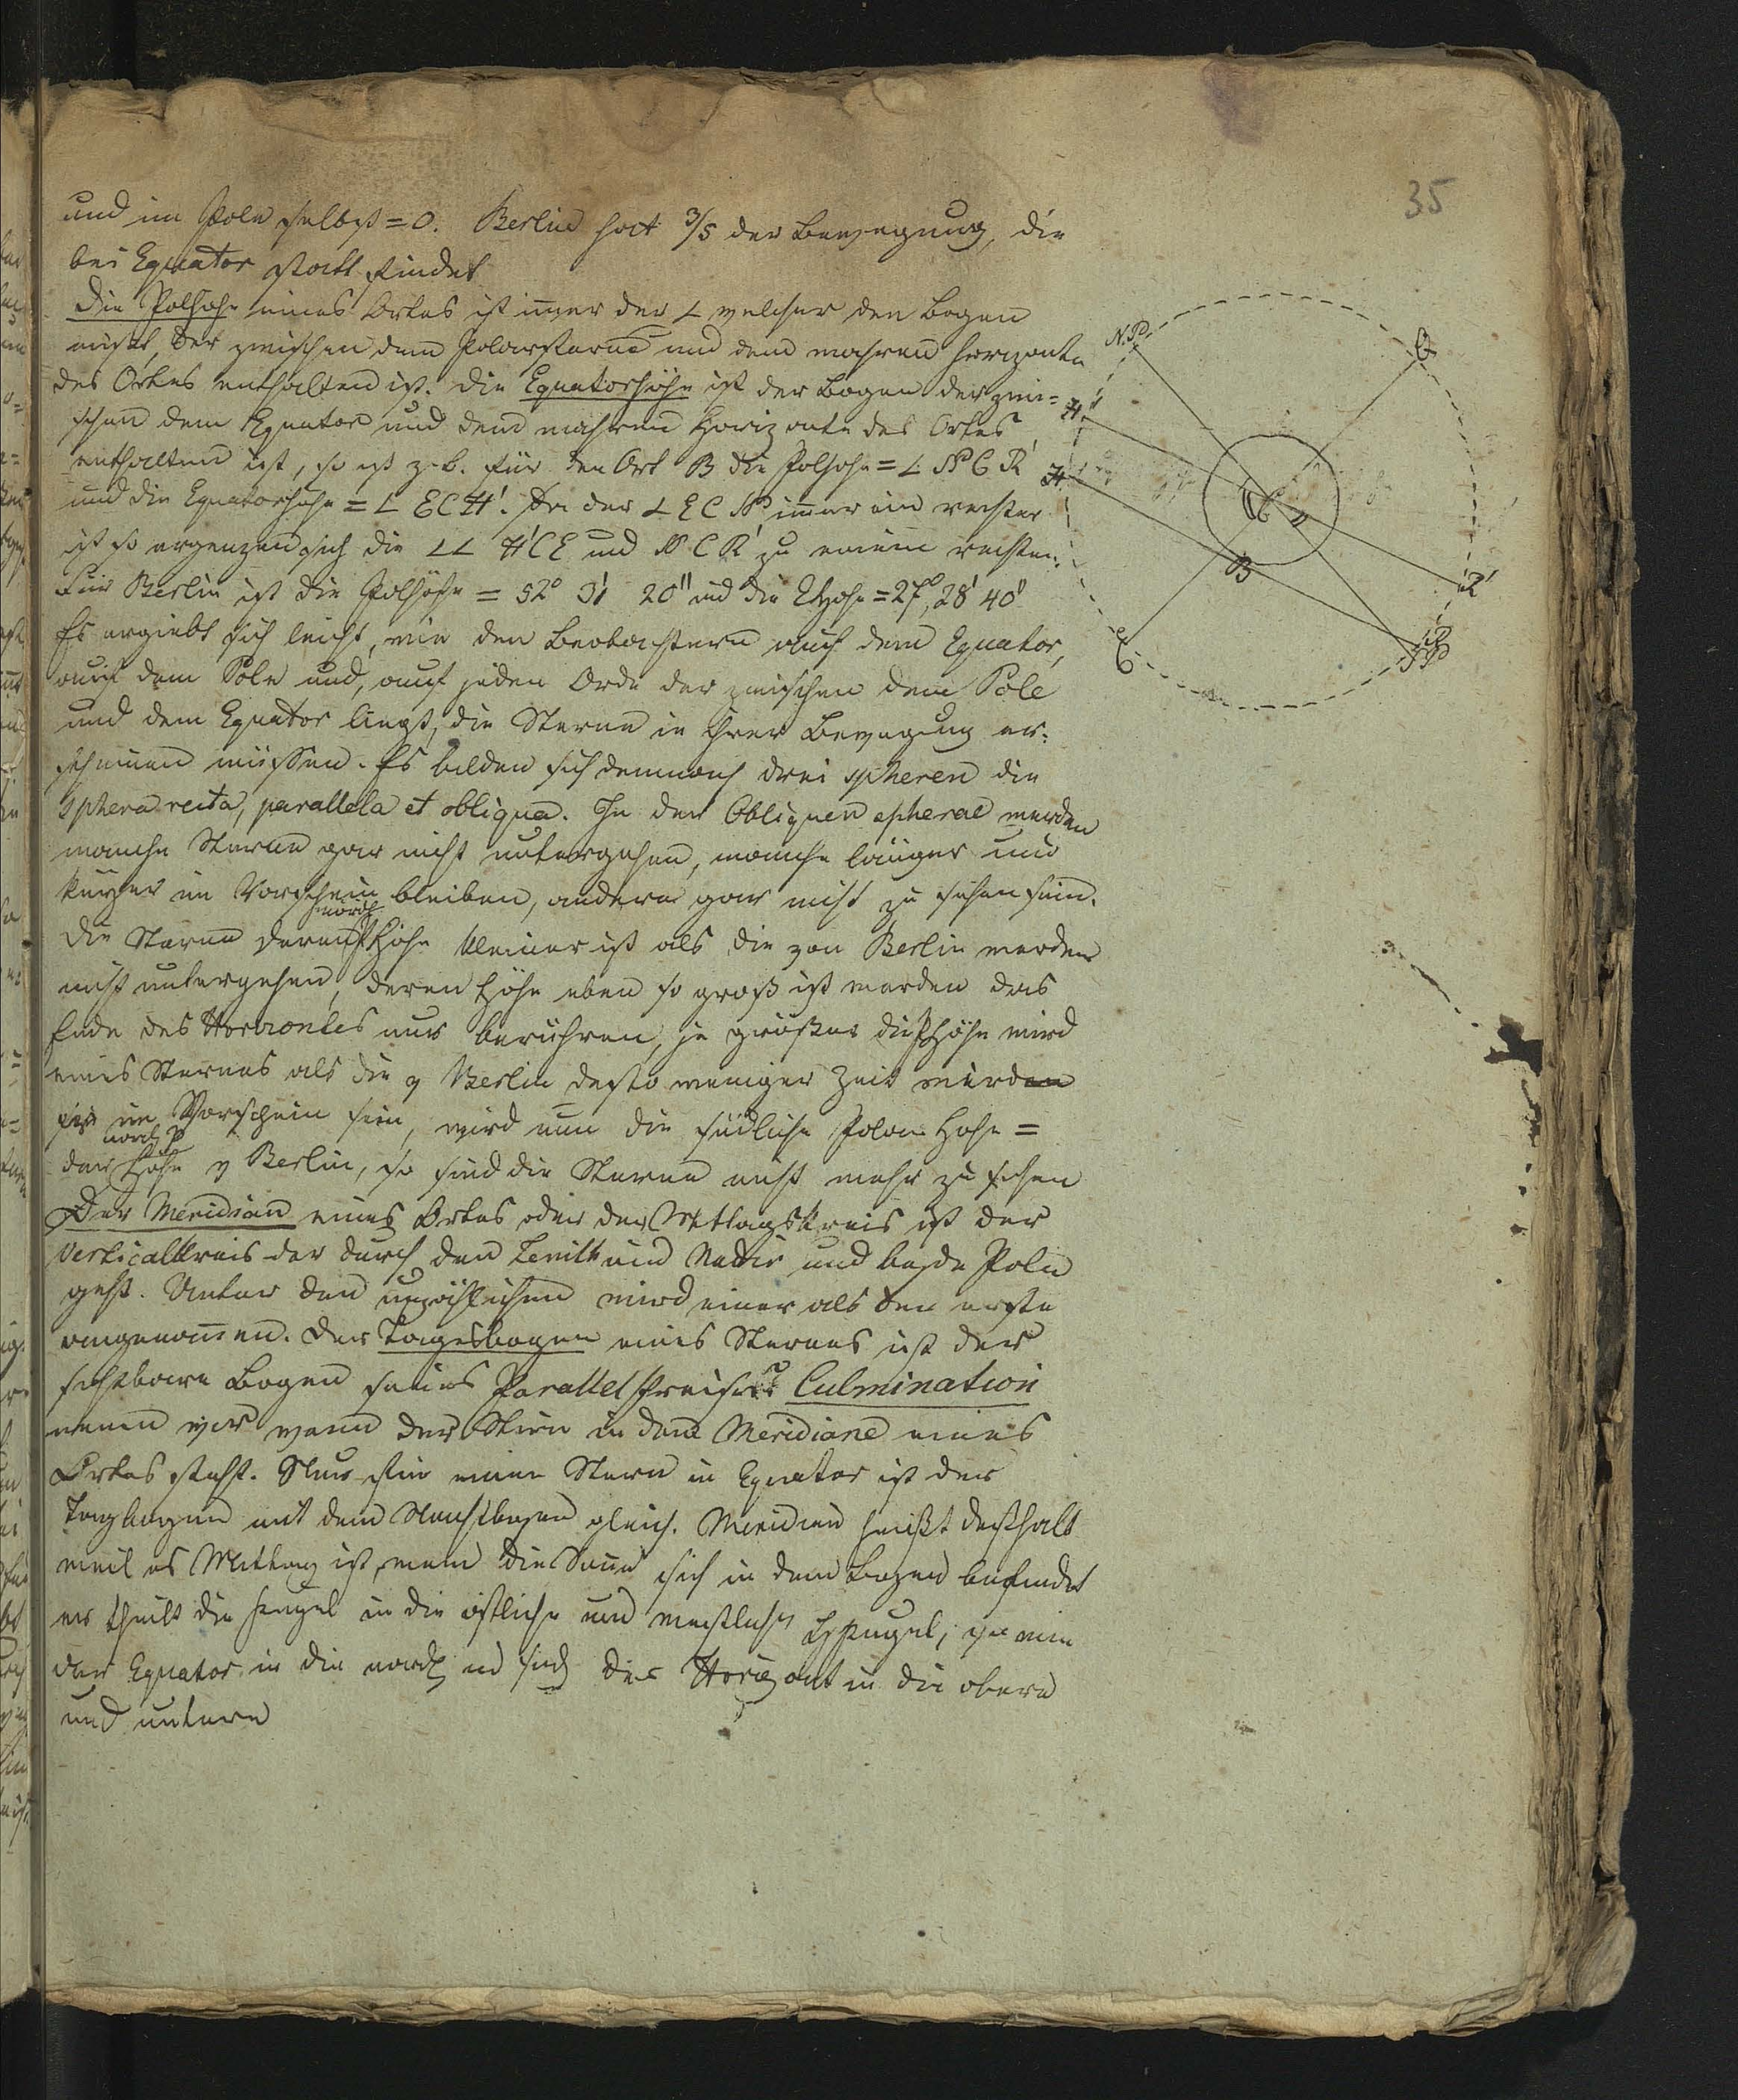 35
und im Pole selbst = 0. Berlin hat 3/5 der Bewegung, die
bei Equator statt findet
Die Polhohe eines Ortes ist im̄er der ∠ welcher den Bogen
mißt, der zwischen dem Polarsterne und dem wahren Horizonte
des Ortes enthalten ist. Die Equatorhöhe ist der Bogen der zwi=
schen dem Equator und dem wahren Horizonte des Ortes
enthalten ist, so ist z. b. für den Ort B die Polhohe = ∠ NP C R'
und die Equatorhohe = ∠ E C H'. Da der ∠ E C NP im̄er ein rechter
ist so ergenzen sich die ∠∠ H' C E und N C R' zu einem rechten.
Für Berlin ist die Polhöhe = 52° 31' 20" und die EHohe = 27°, 28' 40"
Es ergiebt sich leicht, wie den Beobachtern auf dem Equator,
auf dem Pole und, auf jeden Orde der zwischen dem Pole
und dem Equator liegt, die Sterne in ihrer Bewegung er=
scheinen müssen. Es bilden sich demnach drei spheren die
sphera recta, parallela et obliqua. In der Obliquen spherae werden
manche Sterne gar nicht untergehen, manche länger und
kürzer im Vorschein bleiben, andere gar nicht zu sehen sein.
nördl
Die Sterne deren PHöhe kleiner ist als die von Berlin werden
nicht untergehen, deren Höhe eben so groß ist werden das
Ende des Horizontes nur berühren, je größer die PHöhe wird
eines Sternes als die v Berlin desto weniger Zeit wird
er im Vorschein sein, wird nun die südliche Polar Hohe =
nördl P
der Höhe v Berlin, so sind die Sterne nicht mehr zu sehen
Der Meridian eines Ortes oder der Mittagskreis ist der
Verticalkreis der durch den Zenith und Nadir und beyde Pole
geht. Unter den unzähligen wird einer als den erste
angenom̄en. Der Tagesbogen eines Sternes ist der
sichtbare Bogen seines Parallelkreises Culmination
nennen wir wann der Stern in dem Meridiane eines
Ortes steht. Nur für einen Stern in Equator ist der
Tagbogen mit dem Nachtbogen gleich. Meridian heißt deßhalb
weil es Mittag ist, wenn die Sonne sich in dem Bogen befindet
er theilt die Kugel in die östliche und westliche HKugel, so wie
der Equator in die nördl und südl der Horizont in die obere
und untere
N.P.
Q
H'
H
C
B
R'
E
SP